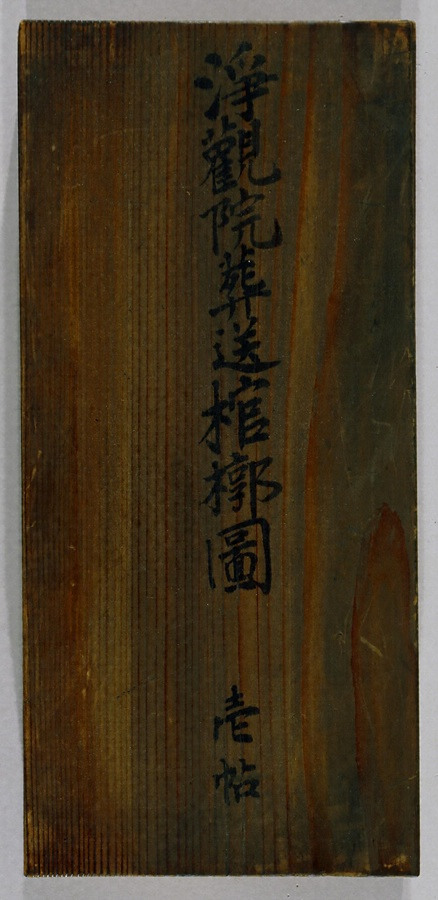 淨觀院葬送棺槨圖　壱帖